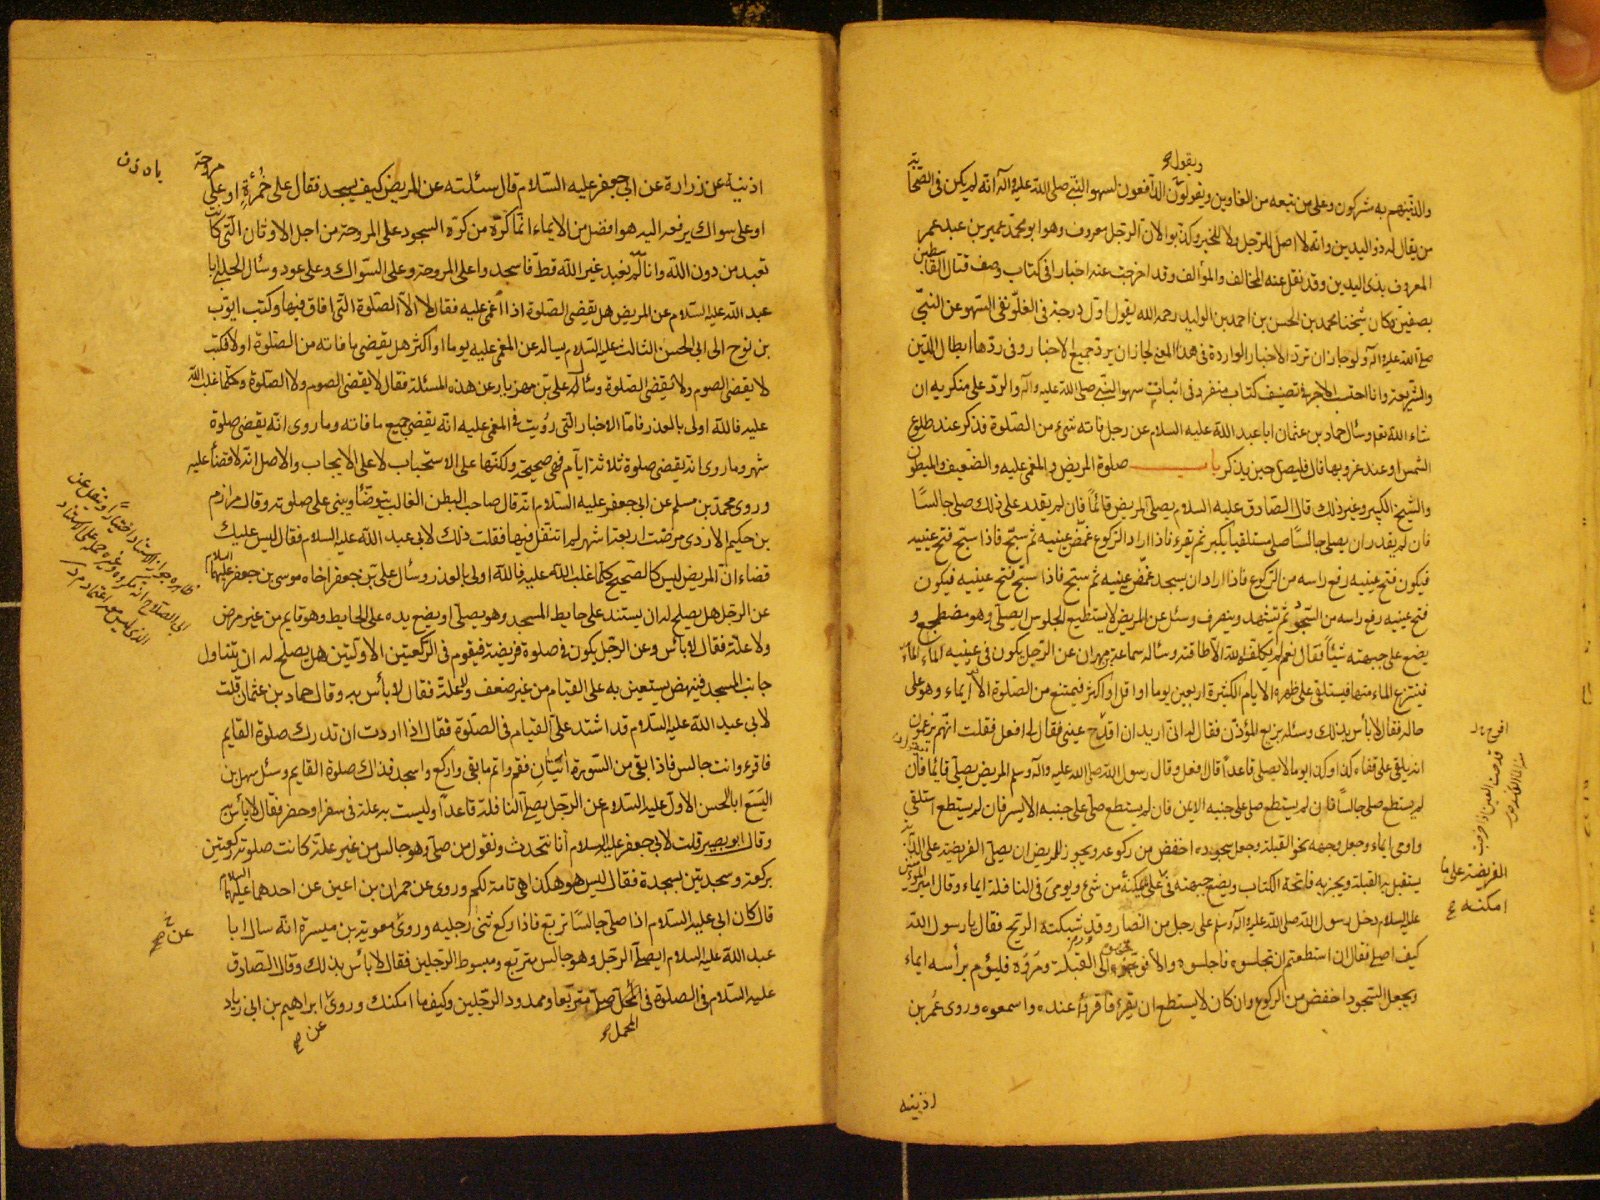 ويقول
والذينهم به مشركون وعلى من تبعه من الغاوين ويقولون الدافعون لسهو النبي صلى الله عليه وآله انه لم يكن في الصحابة
من يقال له ذو اليدين وانه لا اصل للرجل ولا للخبر وكذبوا لان الرجل معروف وهو ابو محمد عمير بن عبد عمر
المعروف بذى اليدين وقد نقل عنه المخالف والمؤالف وقد اخرجت عنه اخبارا في كتاب وصف قتال القاسطين
بصفين وكان شيخنا محمد بن الحسن بن احمد بن الوليد رحمه الله يقول اول درجة في الغلو نفى السهو عن النبي
صلى الله عليه وآله ولو جاز ان ترد الاخبار الواردة في هذا المعنى لجاز ان يرد جميع الاخبار وفي ردها ابطال الدين
والشريعة وانا احتسب الاجر في تصنيف كتاب منفرد في اثبات سهو النبي صلى الله عليه وآله والرد على منكريه ان
شاء الله تعالى وسأل حماد بن عثمان ابا عبد الله عليه السلام عن رجل فاته شيء من الصلوة فذكر عند طلوع
الشمس او عند غروبها قال فليصل حين يذكر باب صلوة المريض والمغمى عليه والضعيف والمبطون
والشيخ الكبير وغير ذلك قال الصادق عليه السلام يصلى المريض قائما فان لم يقدر على ذلك صلى جالسا
فان لم يقدر ان يصلى جالسا صلى مستلقيا يكبر ثم يقرء فاذا اراد الركوع غمض عينيه ثم سبح فاذا سبح فتح عينيه
فيكون فتح عينيه رفع راسه من الركوع فاذا اراد ان يسجد غمض عينيه ثم سبح فاذا سبح فتح عينيه فيكون
فتح عينيه رفع راسه من السجود ثم يتشهد وينصرف وسئل عن المريض لا يستطيع الجلوس ايصلى وهو مضطجع و
يضع على جبهته شيئا فقال نعم لم يكلفه الله الا طاقته وساله سماعة بن مهران عن الرجل يكون في عينيه الماء
فينتزع الماء منها فيستلقى على ظهره الايام الكثيرة اربعين يوما او اقل او اكثر فيمتنع من الصلوة الا ايماء وهو على
حاله فقال لا بأس بذلك وسئله بزيع المؤذن فقال له انى اريد ان اقدح عينى فقال لى افعل فقلت انهم يزعمون
انه يلقى على قفاه كذا وكذا يوما لا يصلى قاعدا قال افعل وقال رسول الله صلى الله عليه وآله وسلم المريض يصلى قائما فان
لم يستطع صلى جالسا فان لم يستطع صلى على جنبه الايمن فان لم يستطع صلى على جنبه الايسر فان لم يستطع استلقى
واومى ايماء وجعل وجهه نحو القبلة وجعل سجوده اخفض من ركوعه ويجوز للمريض ان يصلى الفريضة على الدابة
يستقبل به القبلة ويجزيه فاتحة الكتاب ويضع جبهته في على ما امكنه من شئ ويومى في النافلة ايماء وقال امير المؤمنين
عليه السلام دخل رسول الله صلى الله عليه وآله وسلم على رجل من الانصار وقد شبكته الريح فقال يا رسول الله
كيف اصلى فقال ان استطعتم ان تجلسوه فاجلسوه والا فوجهوه الى القبلة ومروه فليؤم برأسه ايماء
ويجعل السجود اخفض من الركوع وان كان لا يستطيع ان يقرء فاقرؤا عنده واسمعوه وروى عمر بن
اذينه
الفريضة على ما
امكنه صح
اذينة عن زرارة عن ابى جعفر عليه السلام قال سئلته عن المريض كيف يسجد فقال على خمرة او على مروحة
او على سواك يرفعه اليه هو افضل من الايماء انما كره من كره السجود على المروحة من اجل الاوثان التى كانت
تعبد من دون الله وانا لم نعبد غير الله قط فاسجد وا على المروحة وعلى السواك وعلى عود وسأل الحلبى ابا
عبد الله عليه السلام عن المريض هل يقضى الصلوة اذا اغمى عليه فقال لا الا الصلوة التى افاق فيها وكتب ايوب
بن نوح الى ابى الحسن الثالث عليه السلام يساله عن المغمى عليه يوما او اكثر هل يقضى ما فاته من الصلوة او لا فكتب
لا يقضى الصوم ولا يقضى الصلوة وساله على بن مهزيار عن هذه المسئلة فقال لا يقضى الصوم ولا الصلوة وكلما غلب الله
عليه فالله اولى بالعذر فاما الاخبار التى رويت في المغمى عليه انه يقضى جميع ما فاته وما روى انه يقضى صلوة
شهر وما روى انه يقضى صلوة ثلاثة ايام فهى صحيحة ولكنها على الاستحباب لا على الايجاب والاصل انه لا قضاء عليه
وروى محمد بن مسلم عن ابى جعفر عليه السلام انه قال صاحب البطن الغالب يتوضأ ويبنى على صلوته وقال مرازم
بن حكيم الازدى مرضت اربعة اشهر لم اتنفل فيها فقلت ذلك لابى عبد الله عليه السلام فقال ليس عليك
قضاء ان المريض ليس كالصحيح كلما غلب الله عليه فالله اولى بالعذر وسأل على بن جعفر اخاه موسى بن جعفر عليهما السلام
عن الرجل هل يصلح له ان يستند على حايط المسجد وهو يصلى او يضع يده على الحايط وهو قايم من غير مرض
ولا علة فقال لا بأس وعن الرجل يكون في صلوة فريضة فيقوم في الركعتين الاوليين هل يصلح له ان يتناول
جانب المسجد فينهض يستعين به على القيام من غير ضعف ولا علة فقال لا بأس به وقال حماد بن عثمان قلت
لابى عبد الله عليه السلام قد اشتد على القيام في الصلوة فقال اذا اردت ان تدرك صلوة القايم
فاقرء وانت جالس فاذا بقى من السورة آيتان فقم واتم ما بقى واركع واسجد فذاك صلوة القايم وسئل سهل بن
اليسع ابا الحسن الاول عليه السلام عن الرجل يصلى النافلة قاعدا وليست به علة في سفر او حضر فقال لا بأس به
وقال ابو بصير قلت لابى جعفر عليه السلام انا نتحدث ونقول من صلى وهو جالس من غير علة كانت صلوته ركعتين
بركعة وسجدتين بسجدة فقال ليس هو هكذا هى تامة لكم وروى عن حمران بن اعين عن احدهما عليهما السلام
قال كان ابى عليه السلام اذا صلى جالسا تربع فاذا ركع ثنى رجليه وروى معوية بن ميسرة انه سال ابا
عبد الله عليه السلام ايصلى الرجل وهو جالس متربع ومبسوط الرجلين فقال لا بأس بذلك وقال الصادق
عليه السلام في الصلوة في المحمل صل متربعا وممدود الرجلين وكيف ما امكنك وروى ابراهيم بن ابى زياد
عن صح
المحمل
عن صح